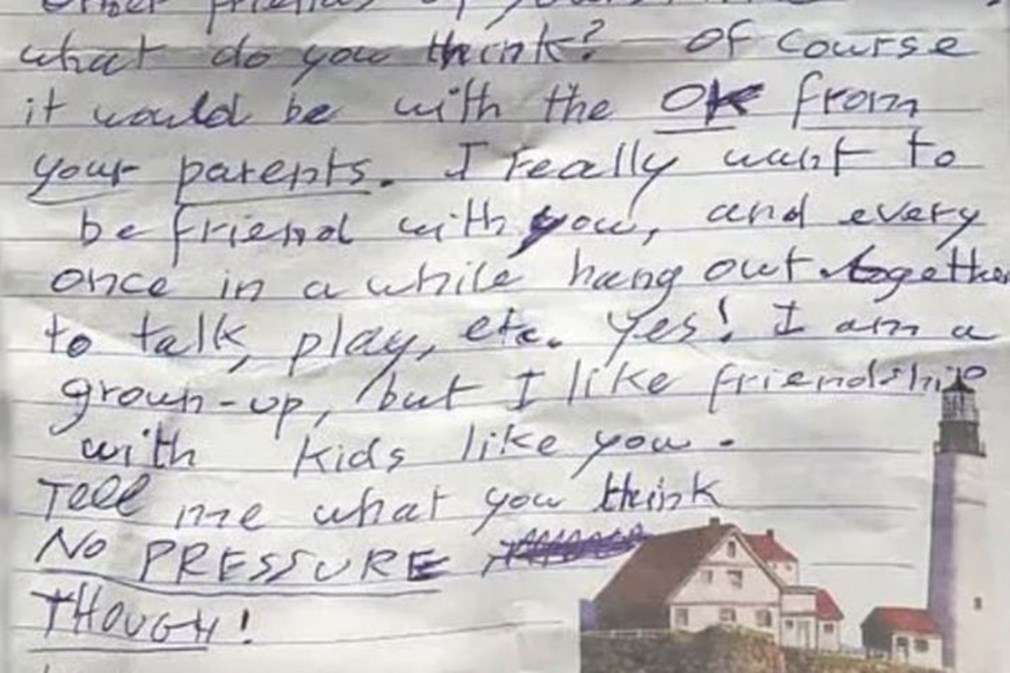 other friends of yours
what do you think? Of course
it would be with the OK from
your parents. I really want to
be friend with you, and every
once in a while hang out together
to talk, play, etc. Yes! I am a
grown-up, but I like friendship
with kids like you.
Tell me what you think
NO PRESSURE
THOUGH!